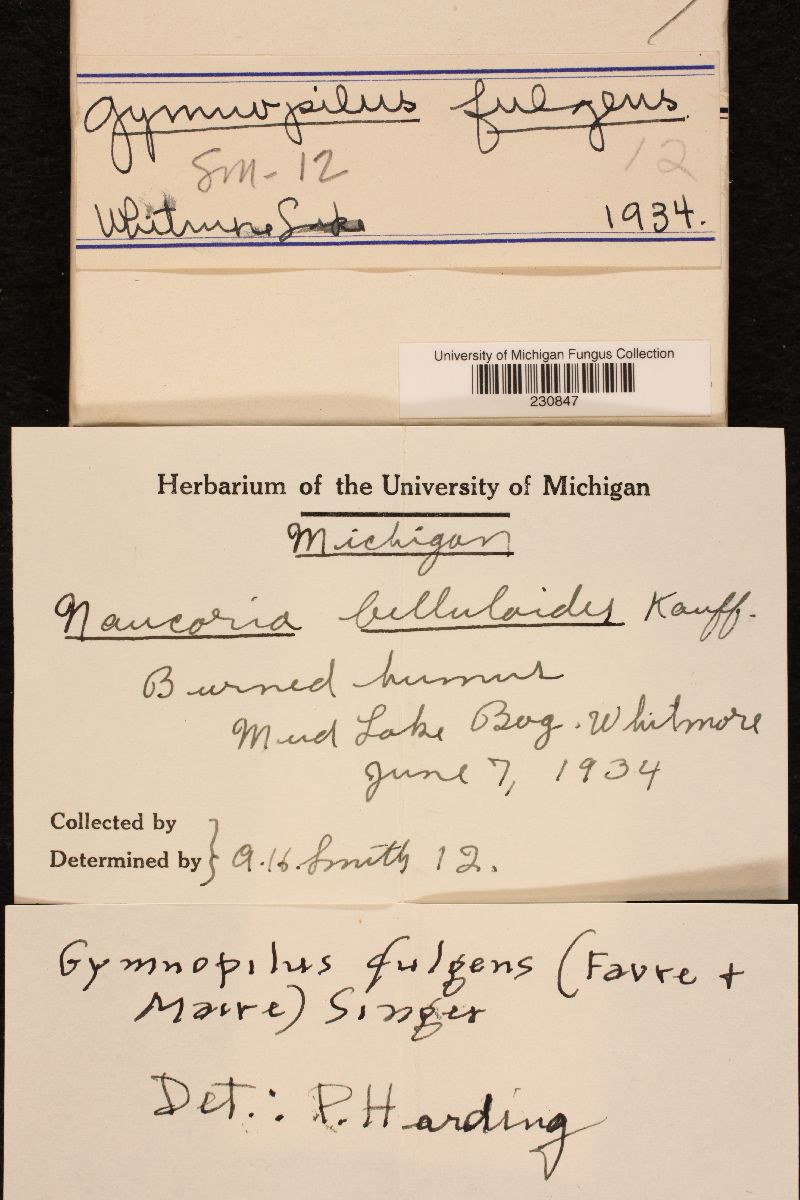 Gymnopilus fulgens.
Sm-12 12
Whitmore Lake 1934.
University of Michigan Fungus Collection
230847
Herbarium of the University of Michigan
Michigan
Naucoria belluloides Kauff.
Burned humus
Mud Lake Bog. Whitmore
June 7, 1934
Collected by
Determined by } A.H. Smith 12.
Gymnopilus fulgens (Favre +
Maire) Singer
Det.: P. Harding